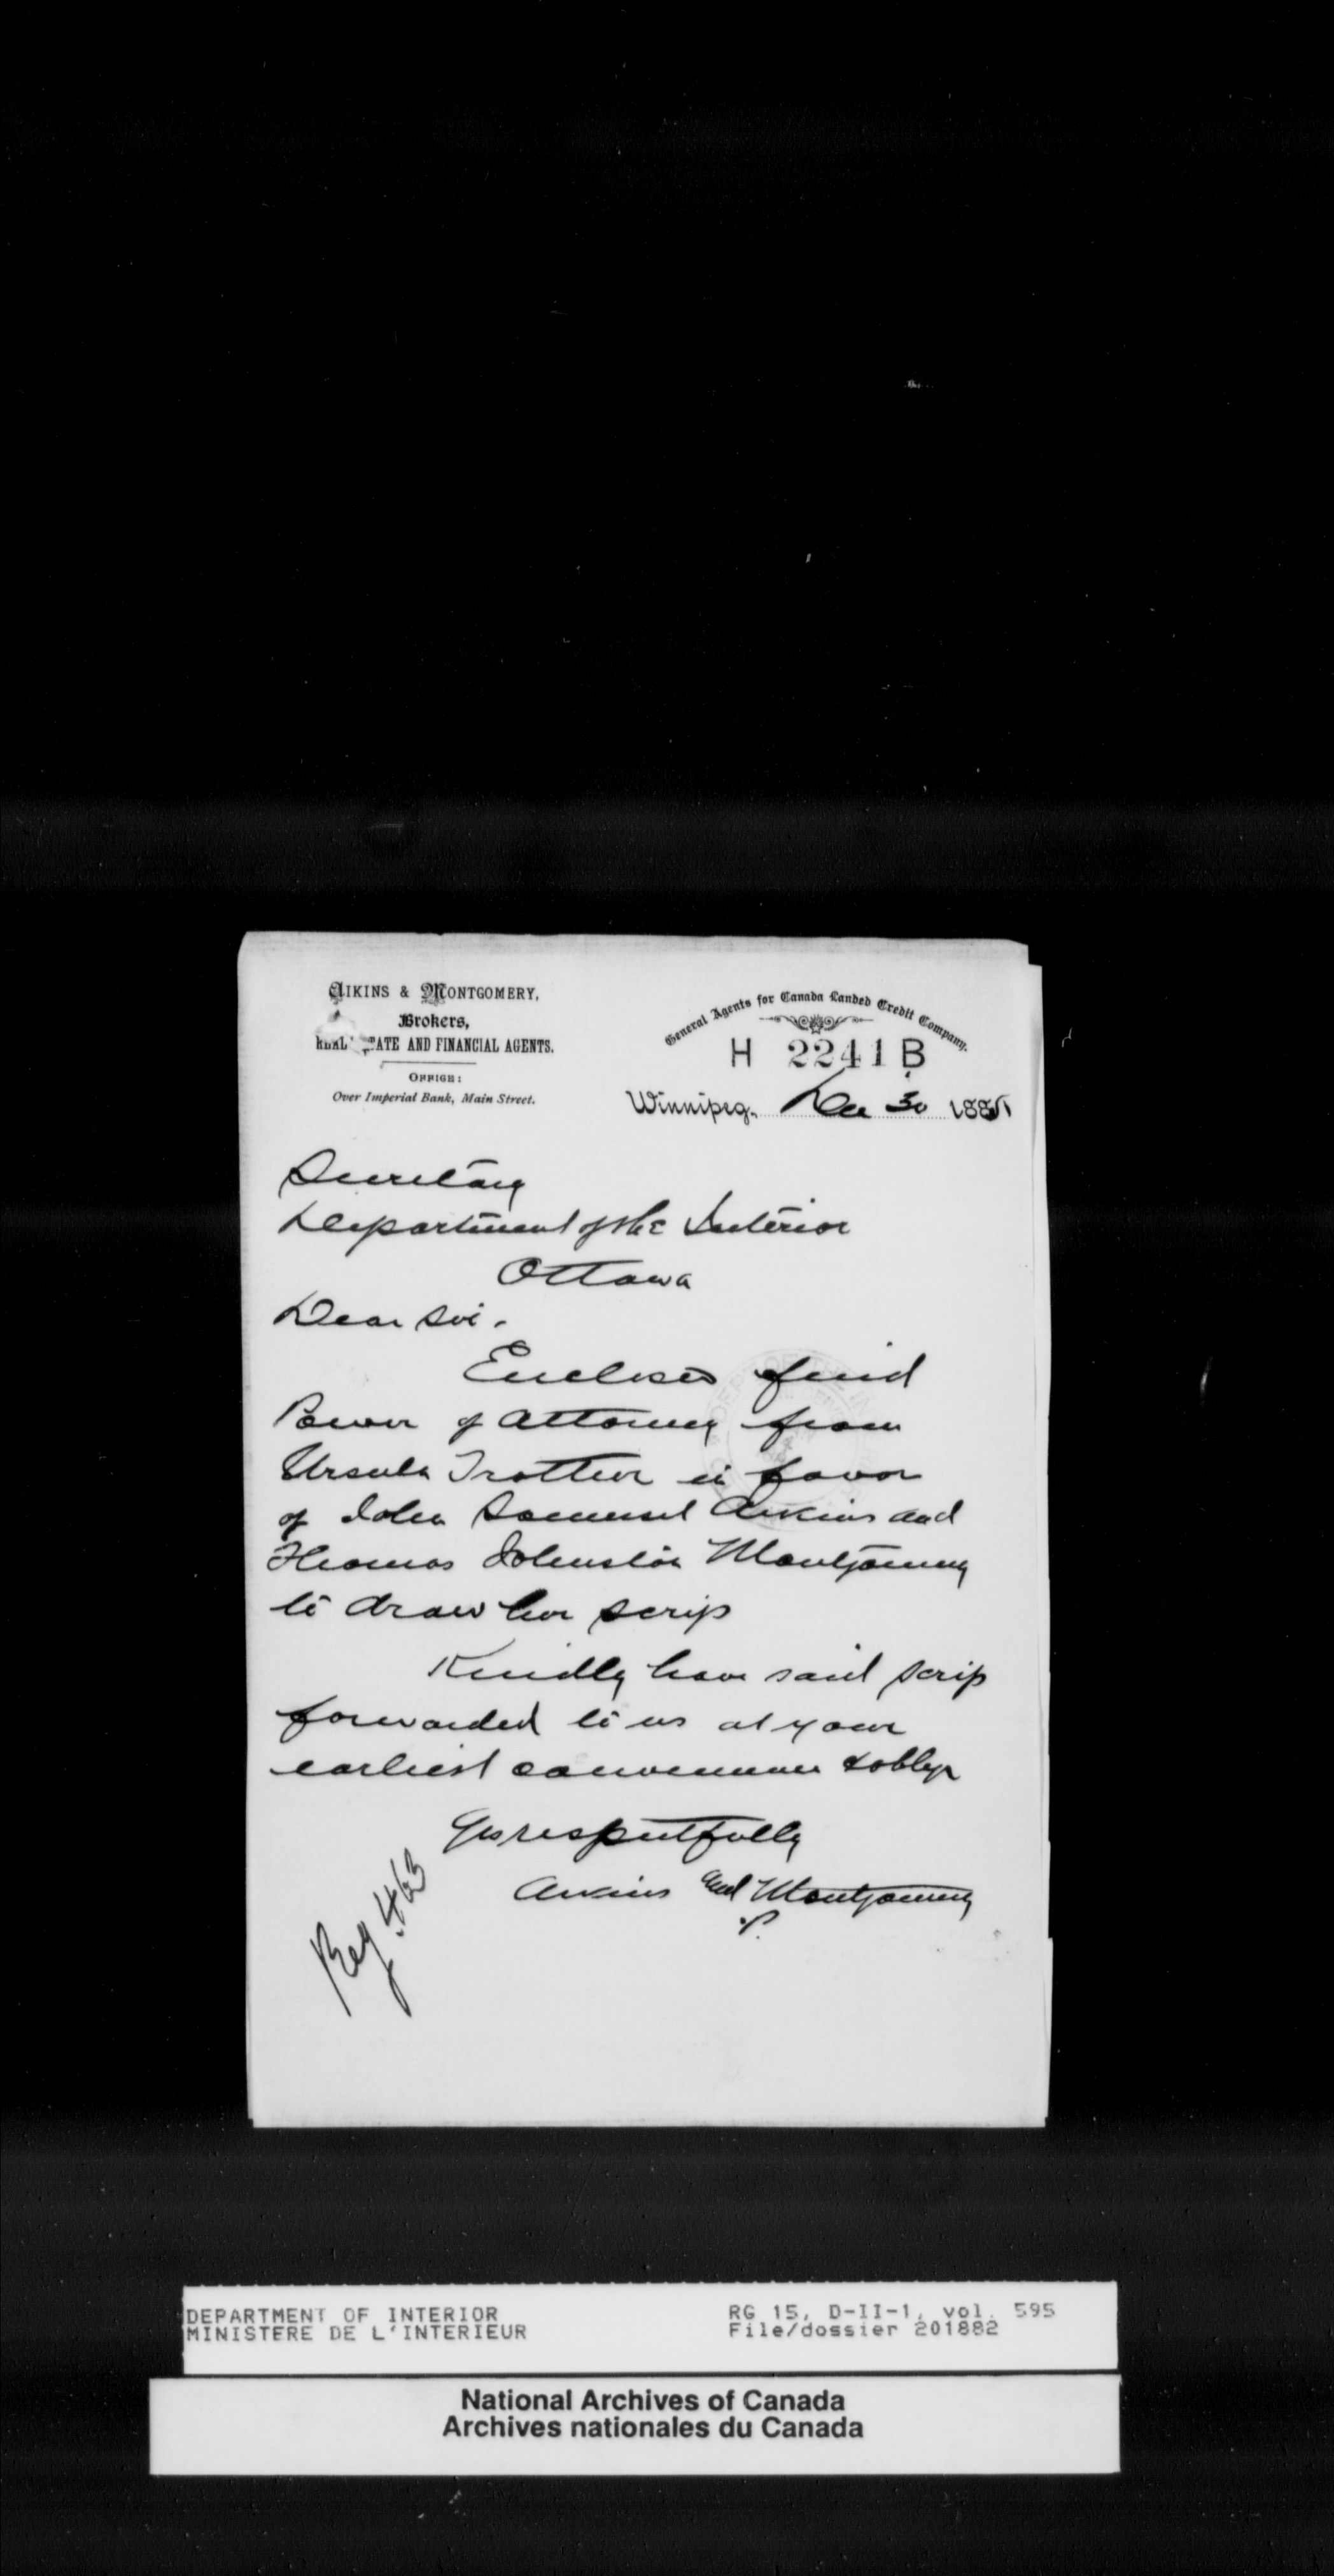 AIKINS & MONTGOMERY,
Brokers,
REAL ESTATE AND FINANCIAL AGENTS.
OFFICE:
Over Imperial Bank, Main Street.
General Agents for Canada Landed Credit Company.
H 2241 B
Winnipeg, Dec 30 188
Secretary
Department of the Interior
Ottawa
Dear Sir.
Enclosed find
Power of Attorney from
Ursula Trottier in favor
of John Somerset Aikins and
Thomas Johnston Montgomery
to draw her scrip
Kindly have said scrip
forwarded to us at your
earliest convenience & oblige
Yrs respectfully
Aikins and Montgomery
Reg. 463
DEPARTMENT OF INTERIOR
MINISTERE DE L'INTERIEUR
RG 15, D-II-1, vol. 595
File/dossier 201882
National Archives of Canada
Archives nationales du Canada